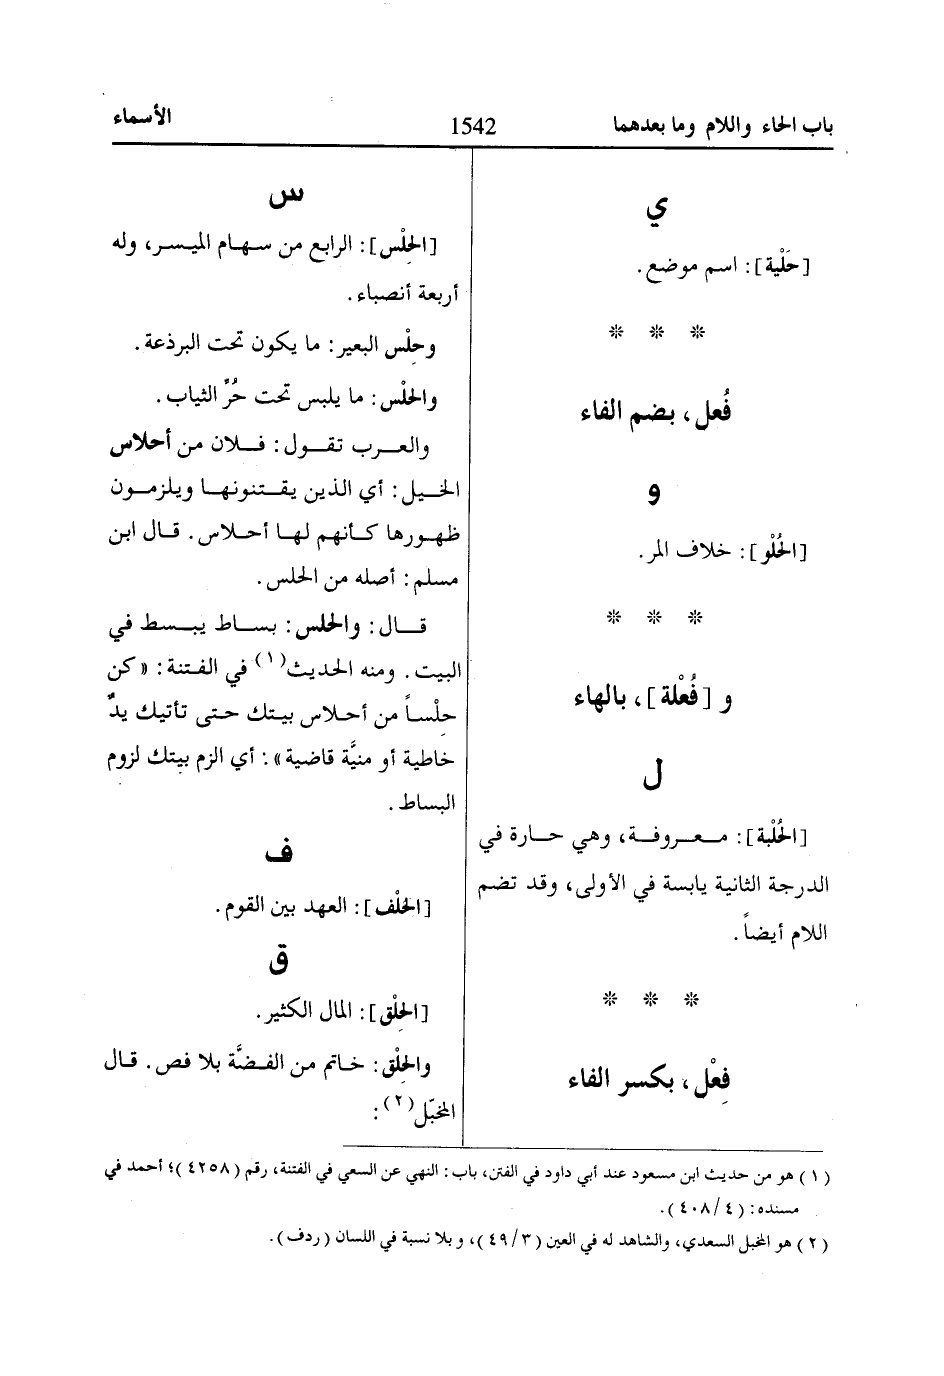 باب الحاء واللام وما بعدهما
1542
الأسماء
ي
[حَلْية]: اسم موضع.
* * *
فُعل، بضم الفاء
و
[الحُلْو]: خلاف المر.
* * *
و [فُعْلة]، بالهاء
ل
[الحُلْبة]: معروفة، وهي حارة في
الدرجة الثانية يابسة في الأولى، وقد تضم
اللام أيضاً.
* * *
فِعْل، بكسر الفاء
س
[الحِلْس]: الرابع من سهام الميسر، وله
أربعة أنصباء.
وحِلْس البعير: ما يكون تحت البرذعة.
والحِلْس: ما يلبس تحت حُرِّ الثياب.
والعرب تقول: فلان من أحلاس
الخيل: أي الذين يقتنونها ويلزمون
ظهورها كأنهم لها أحلاس. قال ابن
مسلم: أصله من الحلس.
قال: والحلس: بساط يبسط في
البيت. ومنه الحديث(١) في الفتنة: «كن
حِلْساً من أحلاس بيتك حتى تأتيك يدٌ
خاطية أو منيَّة قاضية»: أي الزم بيتك لزوم
البساط.
ف
[الحِلْف]: العهد بين القوم.
ق
[الحِلْق]: المال الكثير.
والحِلْق: خاتم من الفضَّة بلا فص. قال
المخبّل(٢):
(١) هو من حديث ابن مسعود عند أبي داود في الفتن، باب: النهي عن السعي في الفتنة، رقم (٤٢٥٨)؛ أحمد في
مسنده: (٤/٤٠٨).
(٢) هو المخبل السعدي، والشاهد له في العين (٣/٤٩)، و بلا نسبة في اللسان (ردف).